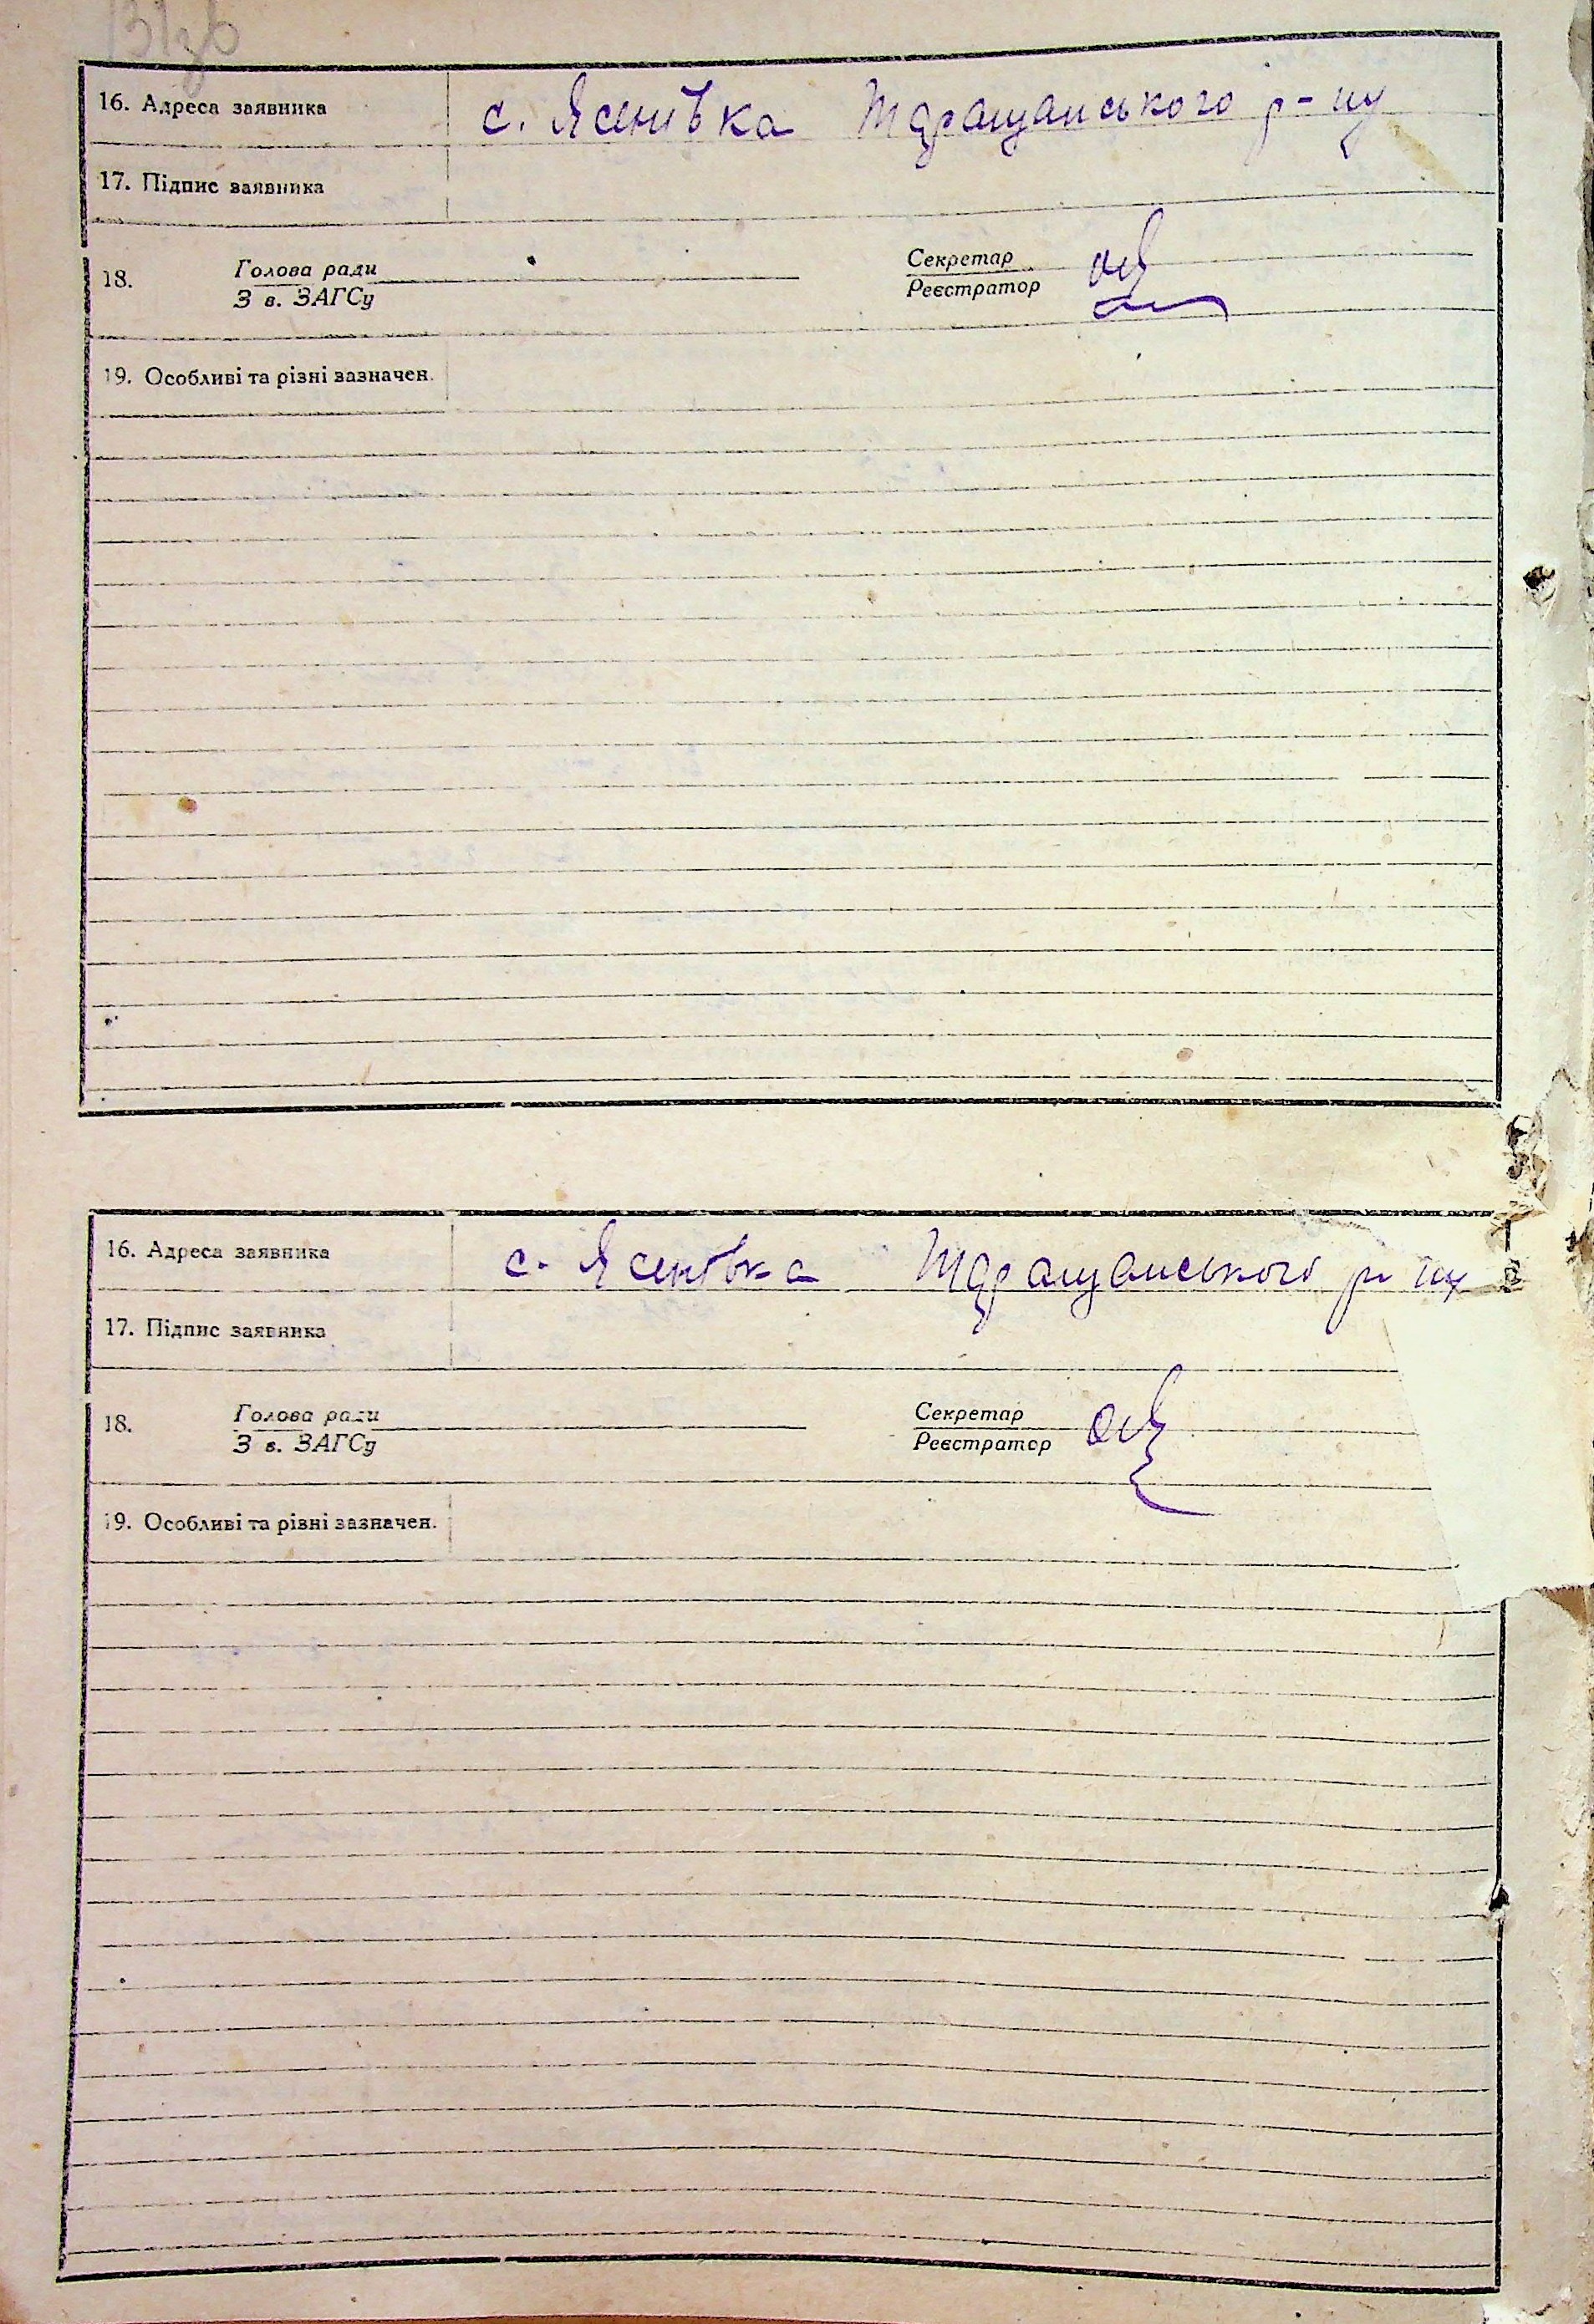 131зв
16. Адреса заявника с. Ясенівка Таращанського р-ну
17. Підпис заявника
18. Голова ради Секретар
З в. ЗАГСу Реєстратор
19. Особливі та різні зазначен.
16. Адреса заявника с. Ясенівка Таращанського р-ну
17. Підпис заявника
18. Голова ради Секретар
З в. ЗАГСу Реєстратор
19. Особливі та різні зазначен.